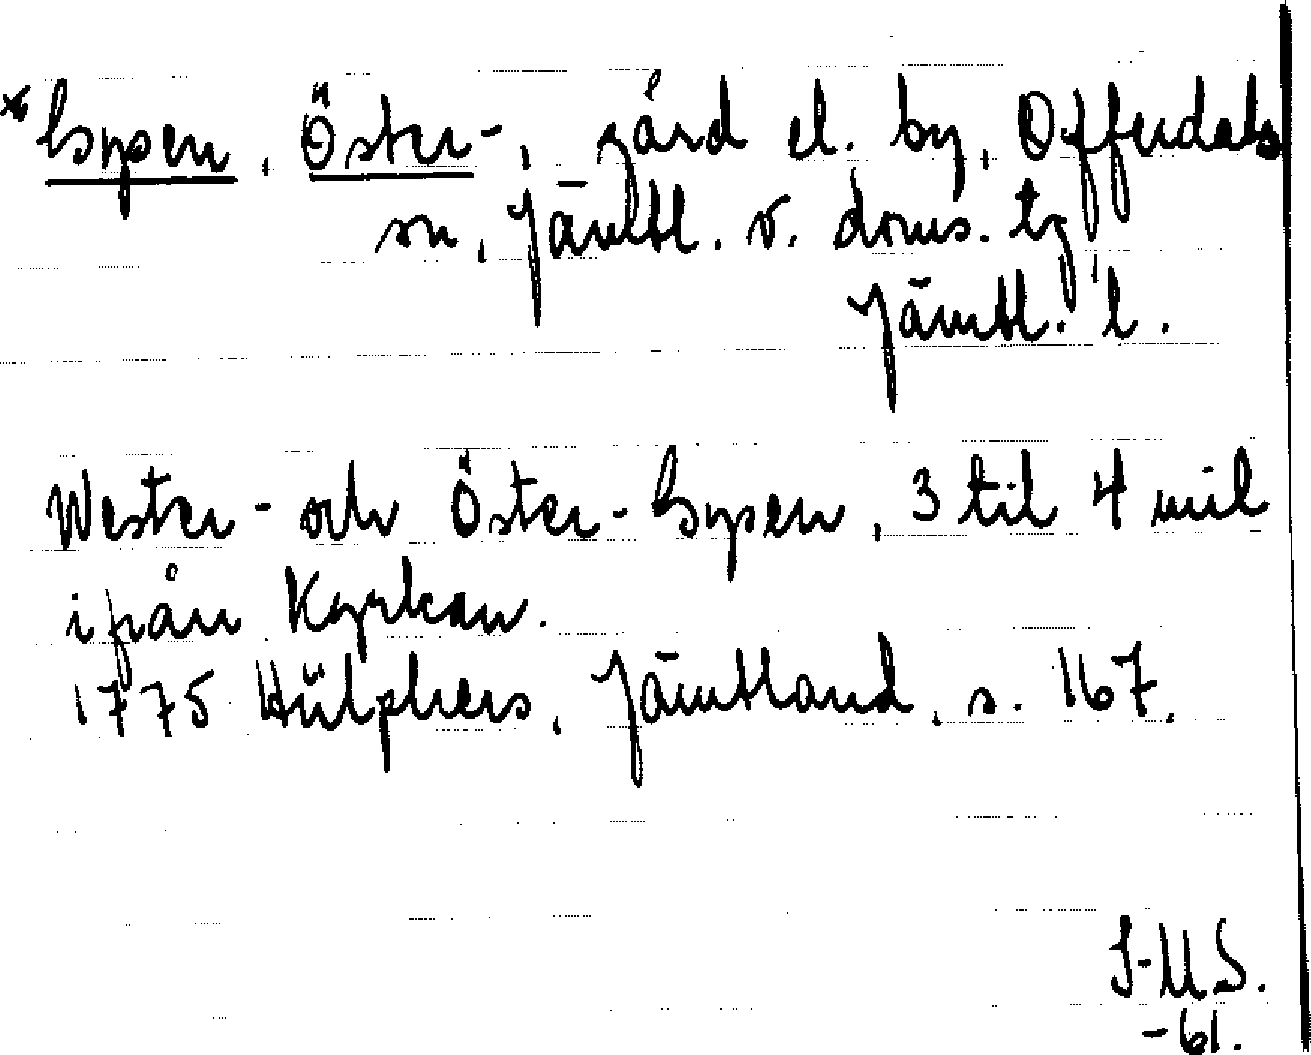 * Bysen, Öster-, gård el. by, Offerdals
sn, Jämtl. v. doms. tg
Jämtl. l.
Wester- och Öster-Bysen, 3 til 4 mil
ifrån Kyrkan.
1775 Hülphers, Jämtland, s. 167.
S-U S.
-61.